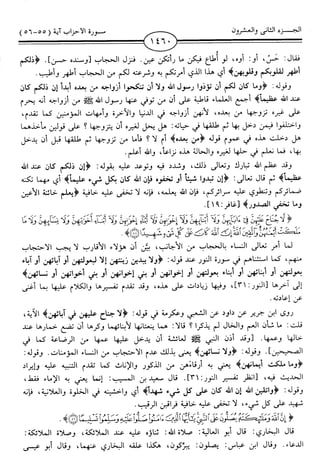 الجـــزء الثاني والعشرون
١٤٦٠
سورة الأحزاب آية (٥٥-٥٦)
فقال: حَسِّ، أو: أوه، لو أُطاع فيكن ما رأتكن عين. فنزل الحجاب [وسنده حسن]. ﴿ذلكم
أطهر لقلوبكم وقلوبهن﴾ أي هذا الذي أمرتكم به وشرعته لكم من الحجاب أطهر وأطيب.
وقوله: ﴿وما كان لكم أن تؤذوا رسول الله ولا أن تنكحوا أزواجه من بعده أبداً إن ذلكم كان
عند الله عظيماً﴾ أجمع العلماء قاطبة على أن من توفي عنها رسول الله ﷺ من أزواجه أنه يحرم
على غيره تزوجها من بعده، لأنهن أزواجه في الدنيا والآخرة وأمهات المؤمنين كما تقدم،
واختلفوا فيمن دخل بها ثم طلقها في حياته: هل يحل لغيره أن يتزوجها؟ على قولين مأخذهما
هل دخلت هذه في عموم قوله ﴿من بعده﴾ أم لا؟ فأما من تزوجها ثم طلقها قبل أن يدخل
بها، فما نعلم في حلها لغيره والحالة هذه نزاعاً. والله أعلم.
وقد عظم الله تبارك وتعالى ذلك، وشدد فيه وتوعد عليه بقوله: ﴿إن ذلكم كان عند الله
عظيماً﴾ ثم قال تعالى: ﴿إن تبدوا شيئاً أو تخفوه فإن الله كان بكل شيء عليماً﴾ أي مهما تكنه
ضمائركم وتنطوي عليه سرائركم، فإن الله يعلمه، فإنه لا تخفى عليه خافية ﴿يعلم خائنة الأعين
وما تخفي الصدور﴾ [غافر: ١٩].
﴿لَّا جُنَاحَ عَلَيْهِنَّ فِي ءَابَآئِهِنَّ وَلَآ أَبْنَآئِهِنَّ وَلَآ إِخْوَٰنِهِنَّ وَلَآ أَبْنَآءِ إِخْوَٰنِهِنَّ وَلَآ أَبْنَآءِ أَخَوَٰتِهِنَّ وَلَا نِسَآئِهِنَّ وَلَا مَا
مَلَكَتْ أَيْمَٰنُهُنَّ وَٱتَّقِينَ ٱللَّهَ إِنَّ ٱللَّهَ كَانَ عَلَىٰ كُلِّ شَىْءٍ شَهِيدًا﴾
لما أمر تعالى النساء بالحجاب من الأجانب، بيّن أن هؤلاء الأقارب لا يجب الاحتجاب
منهم، كما استثناهم في سورة النور عند قوله: ﴿ولا يبدين زينتهن إلا لبعولتهن أو آبائهن أو آباء
بعولتهن أو أبنائهن أو أبناء بعولتهن أو إخوانهن أو بني إخوانهن أو بني أخواتهن أو نسائهن﴾
إلى آخرها [النور: ٣١]، وفيها زيادات على هذه، وقد تقدم تفسيرها والكلام عليها بما أغنى
عن إعادته.
روى ابن جرير عن داود عن الشعبي وعكرمة في قوله: ﴿لا جناح عليهن في آبائهن﴾ الآية،
قلت: ما شأن العم والخال لم يذكرا؟ قالا: هما ينعتانها لأبنائهما وكرها أن تضع خمارها عند
خالها وعمها. [وقد أذن النبي ﷺ لعائشة أن يدخل عليها عمها من الرضاعة كما في
الصحيحين]. وقوله: ﴿ولا نسائهن﴾ يعني بذلك عدم الاحتجاب من النساء المؤمنات. وقوله:
﴿وما ملكت أيمانهن﴾ يعني به أرقاءهن من الذكور والإناث كما تقدم التنبيه عليه وإيراد
الحديث فيه، [انظر تفسير النور: ٣١]. قال سعيد بن المسيب: إنما يعني به الإماء فقط،
وقوله: ﴿واتقين الله إن الله كان على كل شيء شهيداً﴾ أي واخشينه في الخلوة والعلانية، فإنه
شهيد على كل شيء، لا تخفى عليه خافية فراقبن الرقيب.
﴿إِنَّ ٱللَّهَ وَمَلَٰٓئِكَتَهُۥ يُصَلُّونَ عَلَى ٱلنَّبِيِّ يَٰٓأَيُّهَا ٱلَّذِينَ ءَامَنُوا۟ صَلُّوا۟ عَلَيْهِ وَسَلِّمُوا۟ تَسْلِيمًا﴾
قال البخاري: قال أبو العالية: صلاة الله: ثناؤه عليه عند الملائكة، وصلاة الملائكة:
الدعاء. وقال ابن عباس: يصلون: يبرّكون، هكذا علقه البخاري عنهما، وقال أبو عيسى